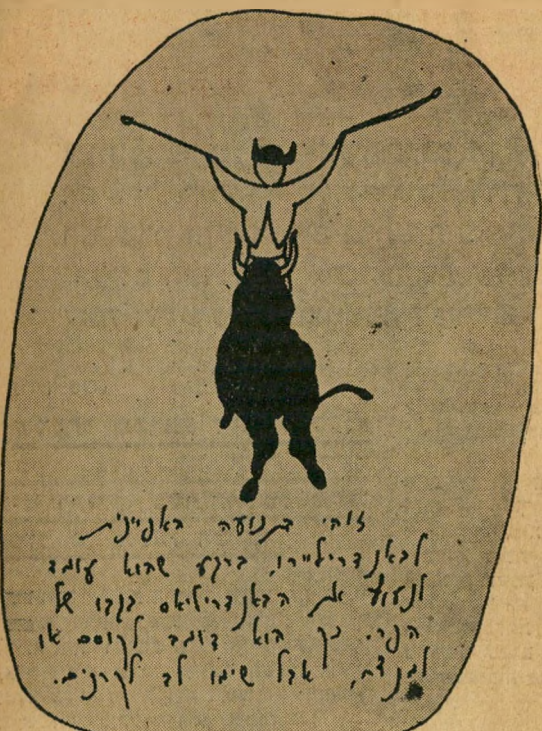 זוהי התנועה האפיינית
לבאנדריליירו, ברגע שהוא עומד
לנעוץ את הבאנדריליאס בגבו של
הפר. כך הוא דומה לקוסם או
אבל שימו לב לקרנים.